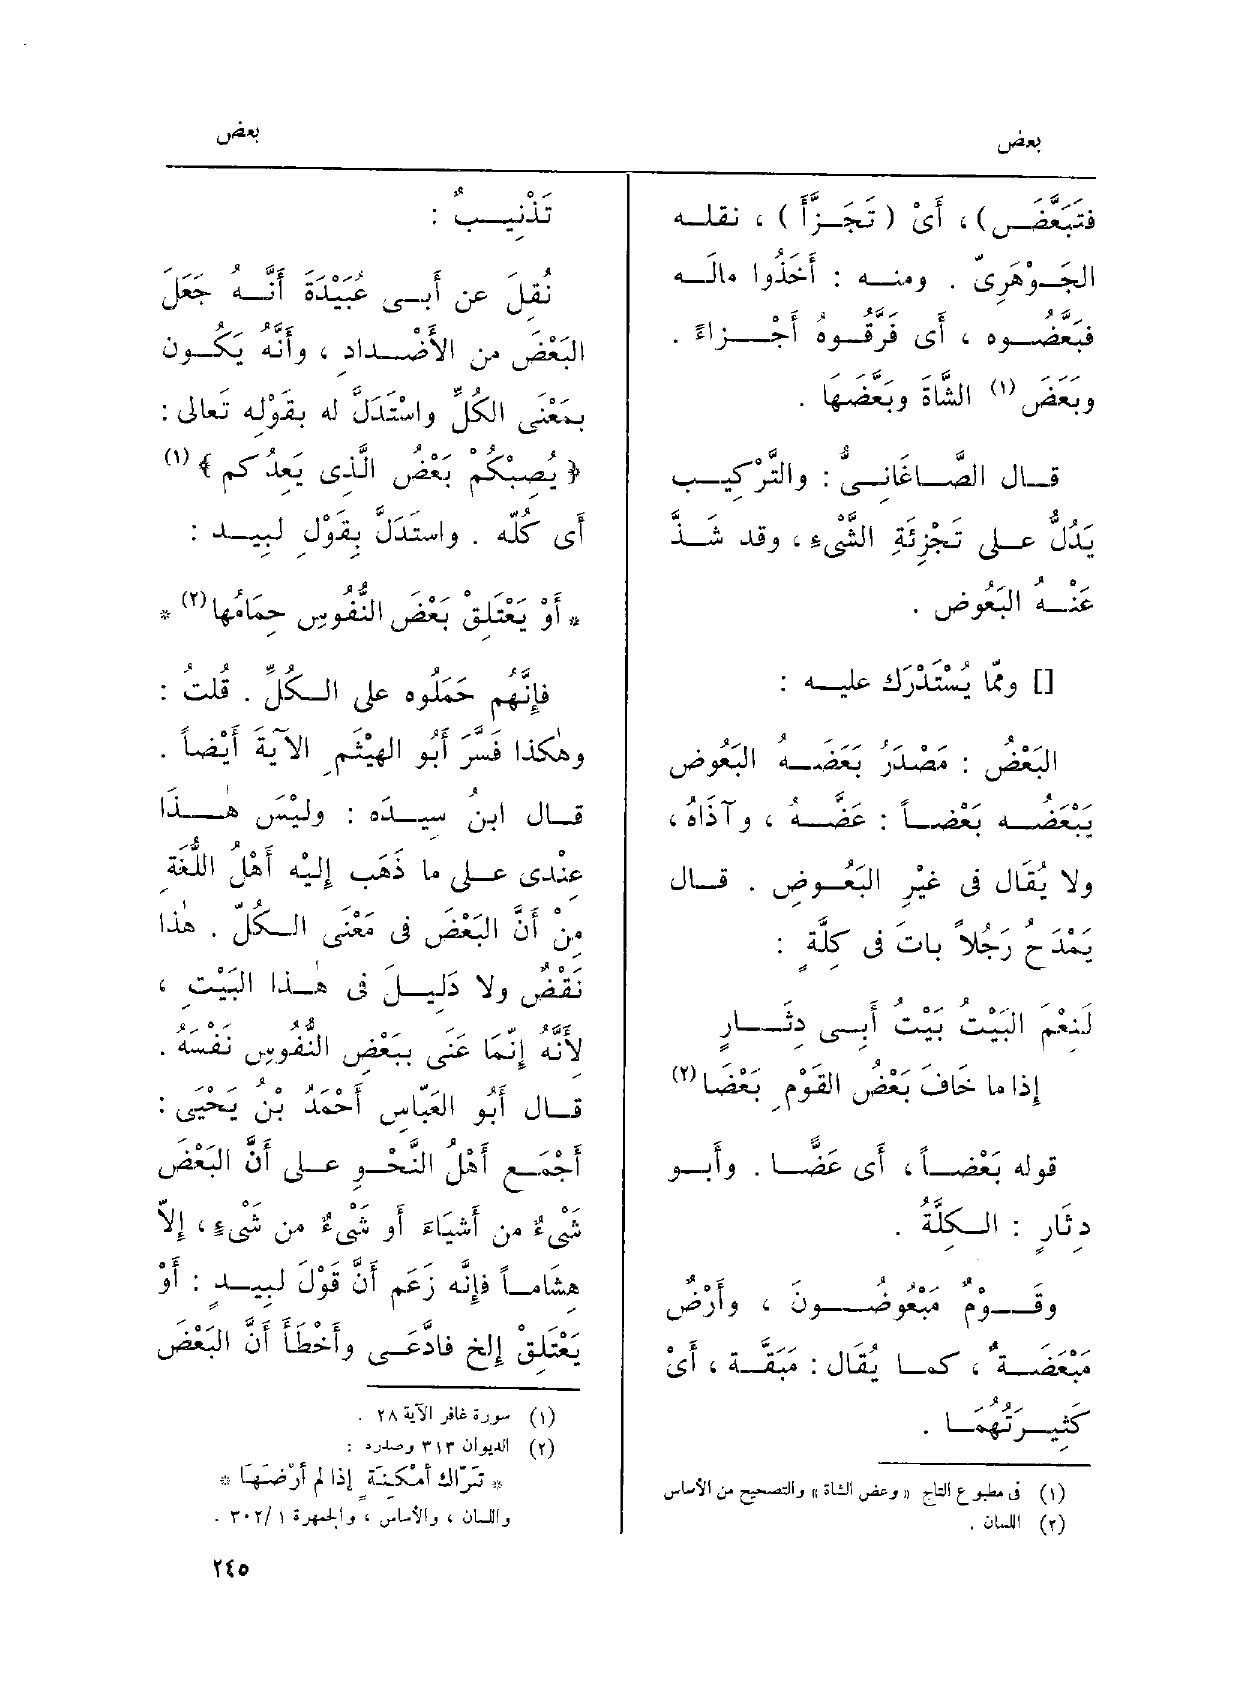 بعض
بعض
فتَبَعَّضَ) ، أَىْ (تَجَزَّأَ) ، نقله
الجَوْهَرِىّ . ومنه : أَخَذُوا مالَه
فبَعَّضُوه ، أَى فَرَّقُوهُ أَجْزاءً .
وبَعَضَ (١) الشَّاةَ وبَعَّضَها .
قال الصَّاغَانِىُّ : والتَّرْكِيب
يَدُلُّ على تَجْزِئَةِ الشَّىْءِ ، وقد شَذَّ
عَنْهُ البَعُوض .
[] وممّا يُسْتَدْرَك عليه :
البَعْضُ : مَصْدَرُ بَعَضَهُ البَعُوض
يَبْعَضُه بَعْضاً : عَضَّهُ ، وآذَاهُ ،
ولا يُقَال فى غَيْرِ البَعُوضِ . قال
يَمْدَحُ رَجُلاً باتَ فى كِلَّةٍ :
لَنِعْمَ البَيْتُ بَيْتُ أَبِى دِثَارٍ
إِذا ما خَافَ بَعْضُ القَوْمِ بَعْضَا (٢)
قوله بَعْضاً ، أَى عَضًّا . وأَبو
دِثَارٍ : الكِلَّةُ .
وقَوْمٌ مَبْعُوضُونَ ، وأَرْضٌ
مَبْعَضَةٌ ، كما يُقَال : مَبَقَّة ، أَىْ
كَثِيرَتُهُمَا .
(١) فى مطبوع التاج « وعض الشاة » والتصحيح من الأساس
(٢) اللسان .
تَذْنِيبٌ :
نُقِلَ عن أَبى عُبَيْدَةَ أَنَّهُ جَعَلَ
البَعْضَ من الأَضْدادِ ، وأَنَّهُ يَكُون
بمَعْنَى الكُلِّ واسْتَدَلَّ له بقَوْلِه تَعالى :
﴿ يُصِبْكُمْ بَعْضُ الَّذِى يَعِدُكم ﴾ (١)
أَى كُلّه . واستَدَلَّ بِقَوْلِ لبِيد :
* أَوْ يَعْتَلِقْ بَعْضَ النُّفُوسِ حِمَامُها (٢) *
فإِنَّهُم حَمَلُوه على الكُلِّ . قُلتُ :
وهٰكذا فَسَّرَ أَبُو الهيْثَمِ الآيَةَ أَيْضاً .
قال ابنُ سِيدَه : ولَيْسَ هٰذَا
عِنْدى على ما ذَهَب إِلَيْه أَهْلُ اللُّغَةِ
مِنْ أَنَّ البَعْضَ فى مَعْنَى الكُلّ . هٰذا
نَقْضٌ ولا دَلِيلَ فى هٰذا البَيْتِ ،
لأَنَّهُ إِنَّمَا عَنَى بِبَعْضِ النُّفُوسِ نَفْسَهُ .
قال أَبُو العَبّاسِ أَحْمَدُ بْنُ يَحْيَى :
أَجْمَع أَهْلُ النَّحْوِ على أَنَّ البَعْضَ
شَىْءٌ من أَشْيَاءَ أَو شَىْءٌ من شَىْءٍ ، إِلاّ
هِشَاماً فإِنَّه زَعَم أَنَّ قَوْلَ لبِيدٍ : أَوْ
يَعْتَلِقْ إلخ فادَّعَى وأَخْطَأَ أَنَّ البَعْضَ
(١) سورة غافر الآية ٢٨ .
(٢) الديوان ٣١٣ وصدره :
* تَرّاك أَمْكِنَةٍ إذا لم أَرْضَهَا *
واللسان ، والأساس ، والجمهرة ١ /٣٠٢ .
٢٤٥